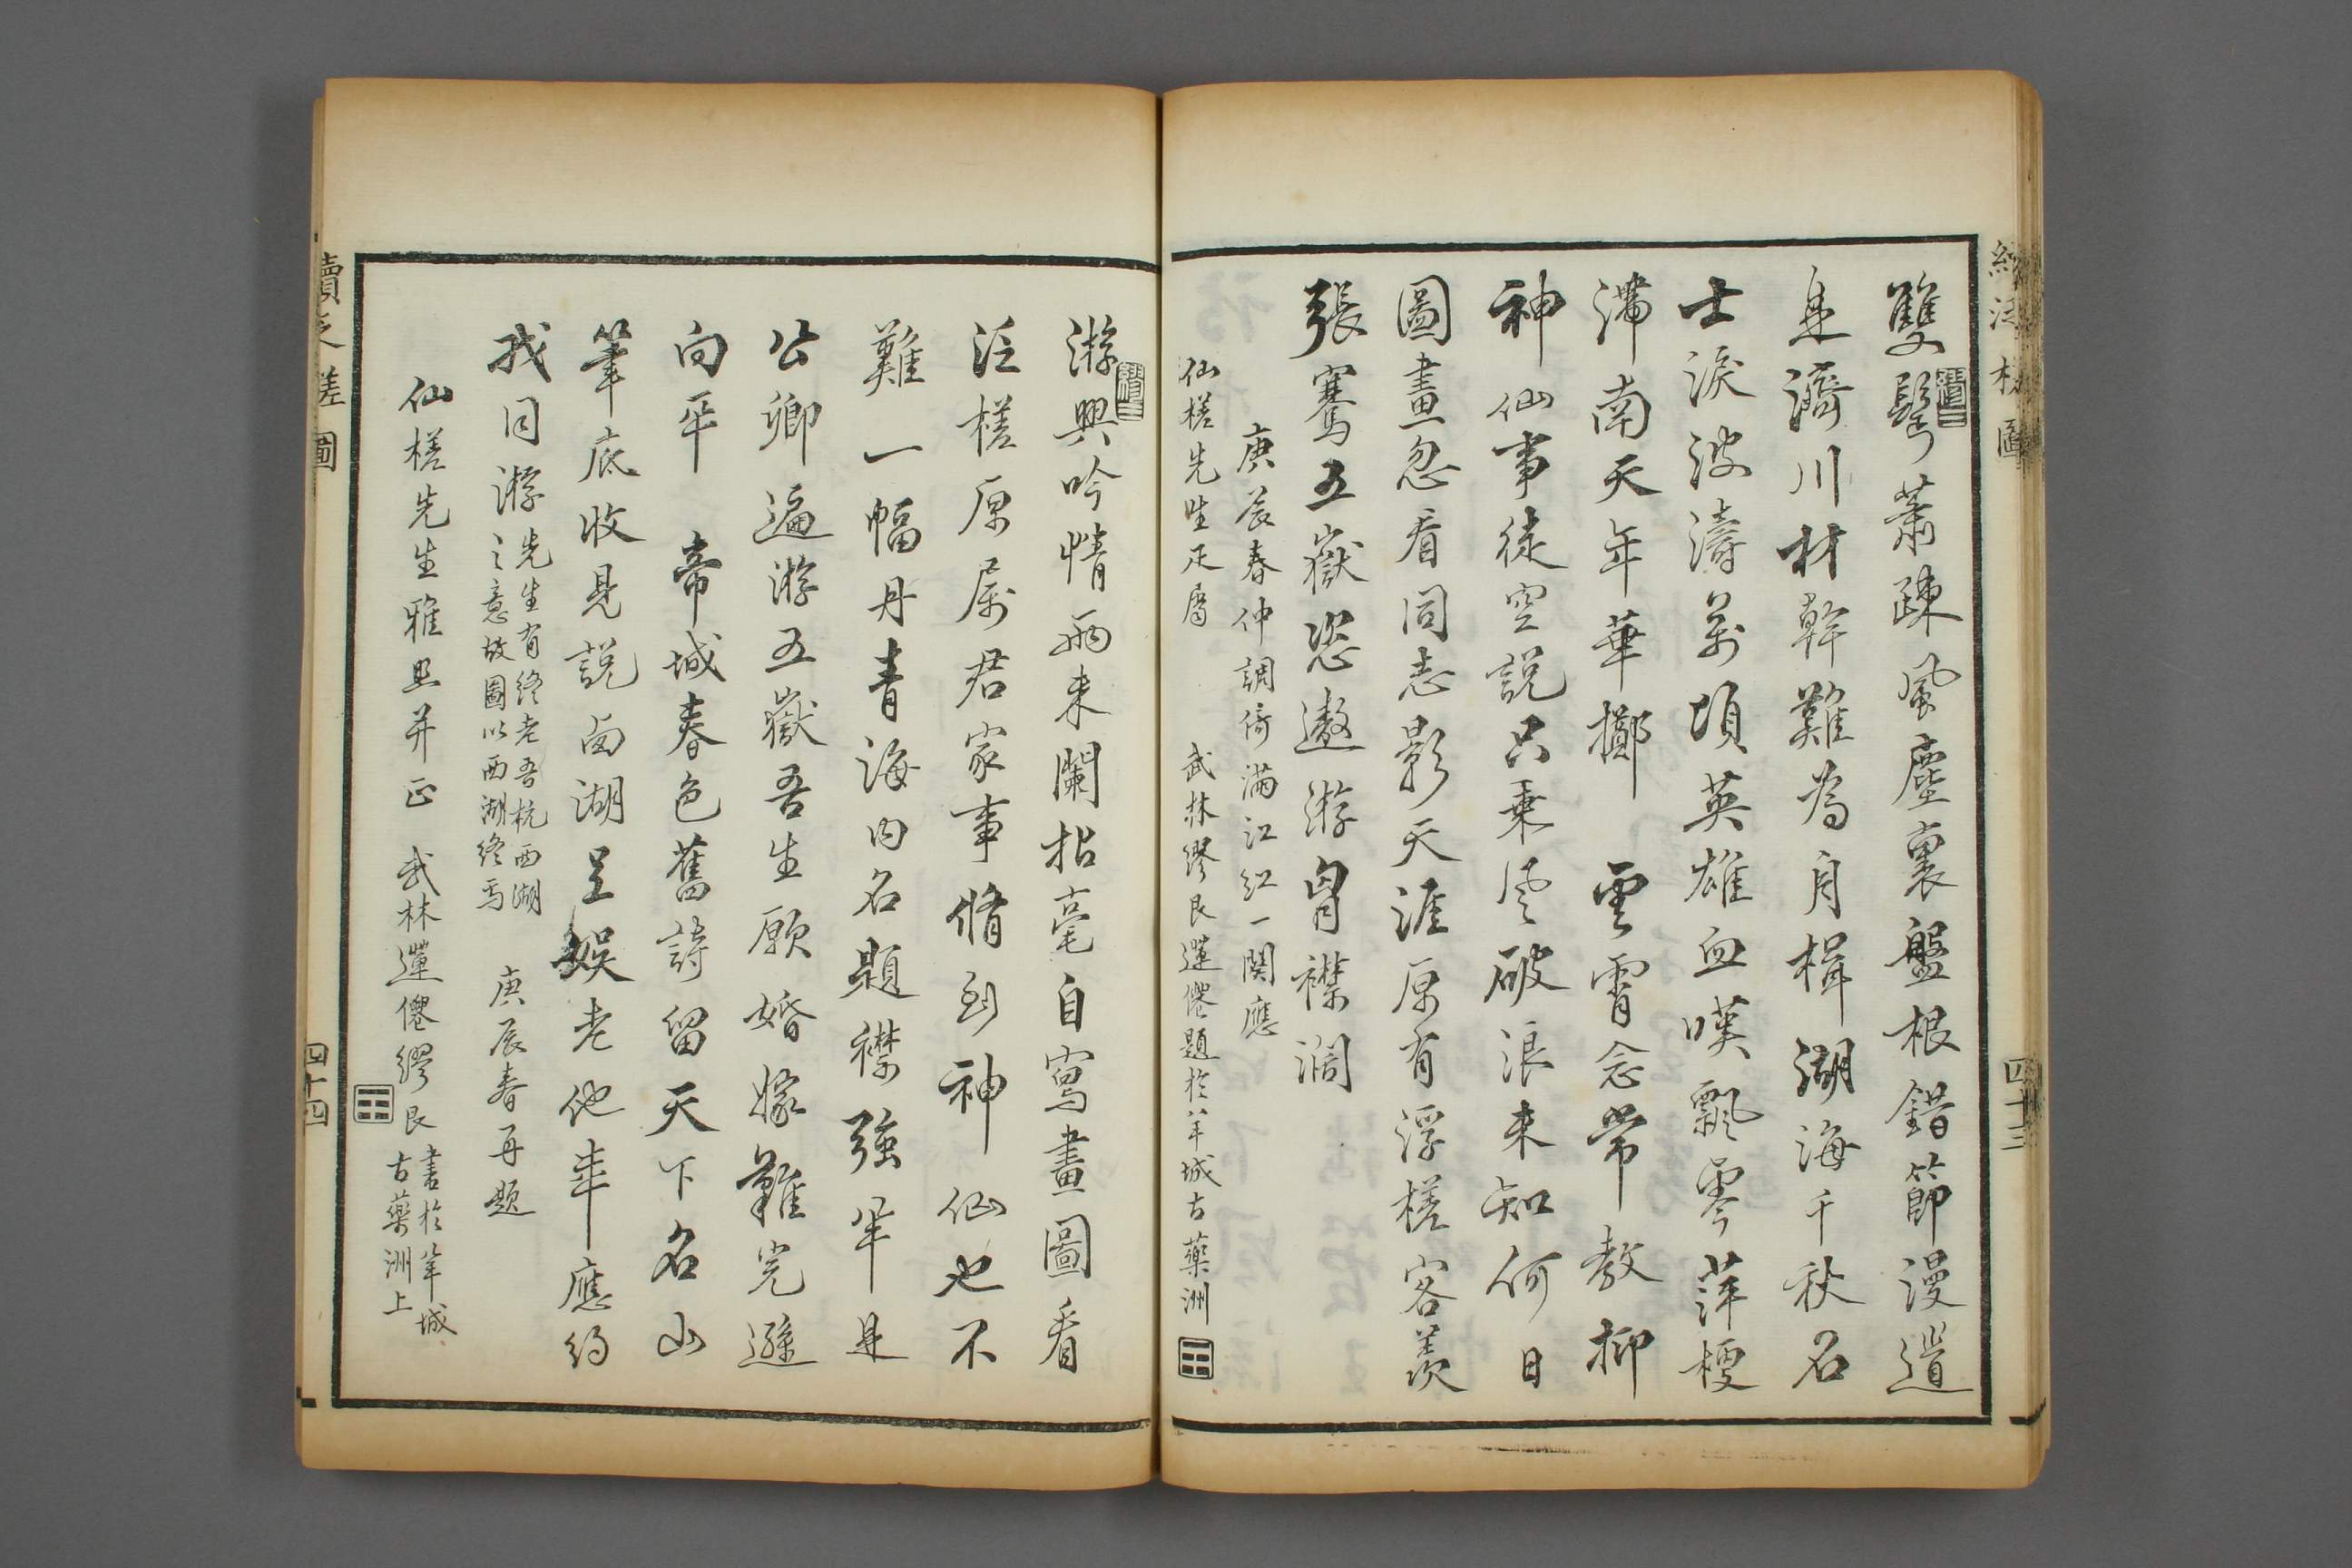 雙鬢蕭疎風塵裏盤根錯節漫道
是濟川材幹難為舟楫湖海千秋名
士淚波濤萬頃英雄血嘆飄零萍梗
滯南天年華擲　雲霄念常教抑
神仙事徒空說只乘風破浪未知何日
圖畫忽看同志影天涯原有浮槎客羨
張騫五嶽恣遨游胷襟濶
庚辰春仲調倚滿江紅一闋應
仙槎先生正屬　武林繆艮蓮僊題於羊城古藥洲
四十三
游興吟情兩未闌拈毫自寫畫圖看
泛槎原屬君家事脩到神仙也不
難一幅丹青海內名題襟強半是
公卿遍游五嶽吾生願婚嫁難完遜
向平　帝城春色舊詩留天下名山
筆底收見說西湖足娛老他年應約
我同游先生有終老吾杭西湖
之意故圖以西湖終焉
庚辰春再題
仙槎先生雅照并正　武林蓮僊繆艮書於羊城
古藥洲上
續泛槎圖
四十四